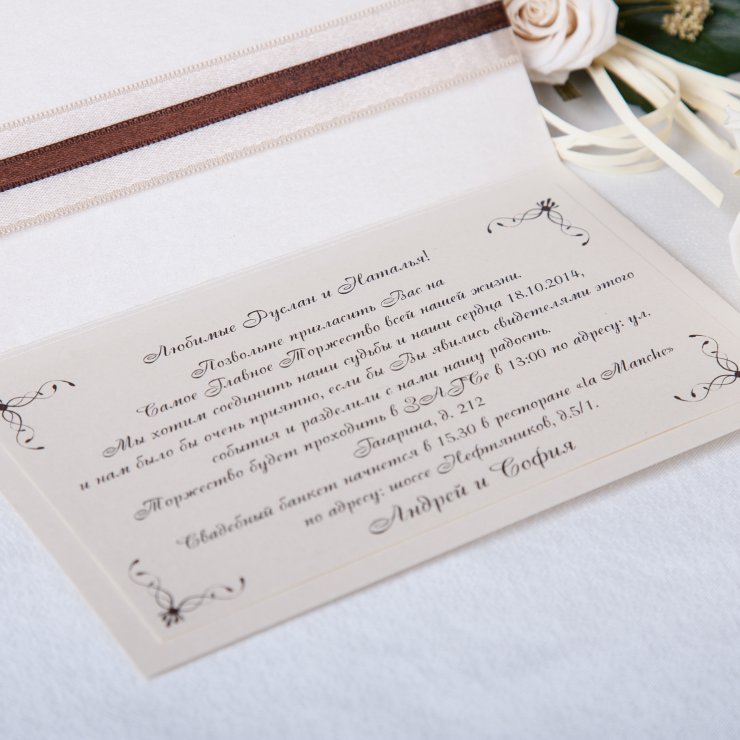 Любимые Руслан и Наталья!
Позвольте пригласить Вас на
Самое Главное Торжество всей нашей жизни.
Мы хотим соединить наши судьбы и наши сердца 18.10.2014,
и нам было бы очень приятно, если бы Вы явились свидетелями этого
события и разделили с нами нашу радость.
Торжество будет проходить в ЗАГСе в 13:00 по адресу: ул.
Гагарина, д. 212
Свадебный банкет начнется в 15.30 в ресторане «la Manche»
по адресу: шоссе Нефтяников, д.5/1.
Андрей и София